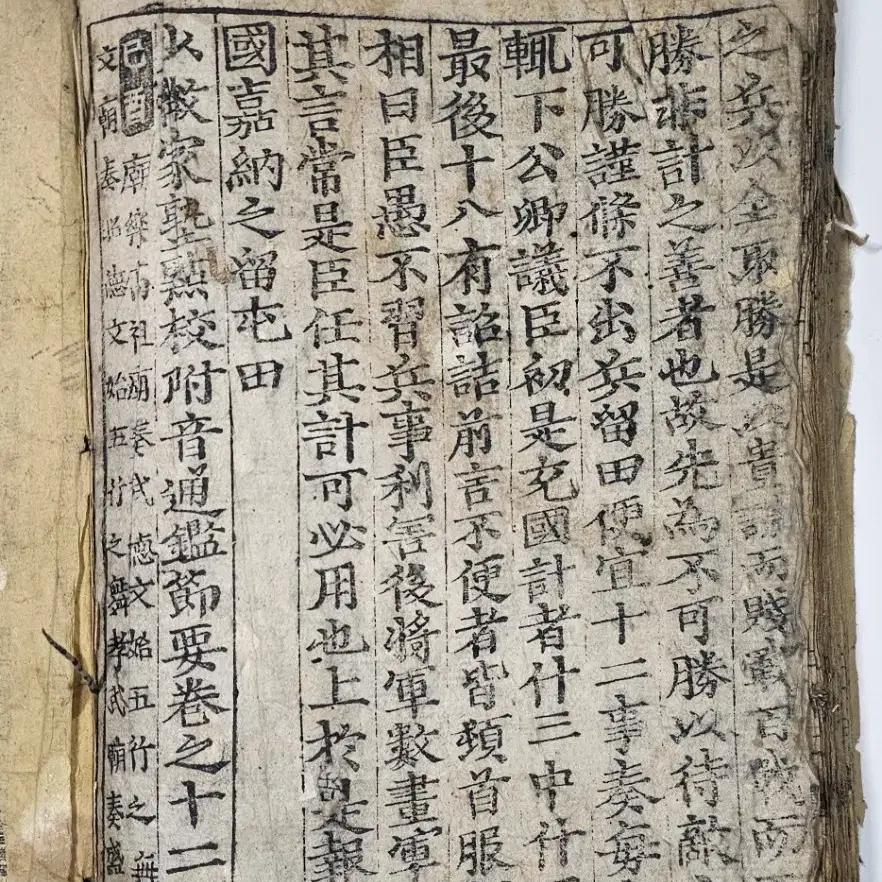 之兵以全取勝是以貴謀而賤戰百戰而
勝非計之善者也故先為不可勝以待敵
可勝謹條不出兵留田便宜十二事奏每
輒下公卿議臣初是充國計者什三中什
最後十八有詔詰前言不便者皆頓首服
相曰臣愚不習兵事利害後將軍數畫軍
其言常是臣任其計可必用也上於是報
國嘉納之留屯田
少微家塾點校附音通鑑節要卷之十二
廟祖廟奏武德文始五行之舞
文廟奏昭德文始五行之舞孝武廟奏盛